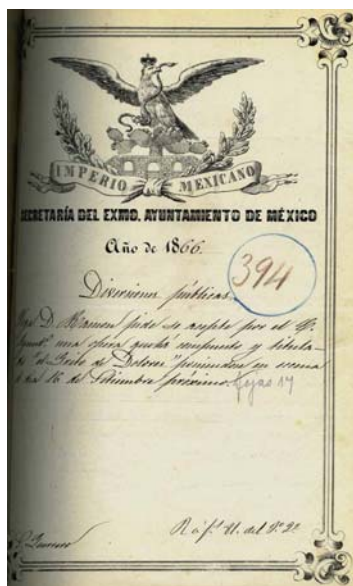 IMPERIO MEXICANO
SECRETARÍA DEL EXMO. AYUNTAMIENTO DE MÉXICO
Año de 1866.
394
Diversiones públicas.
D. Ramon pide se acepte por el
una opera que ha compuesto y titula-
do "el Grito de Dolores" poniendose en escena
el dia 16 de Setiembre próximo. fojas 17